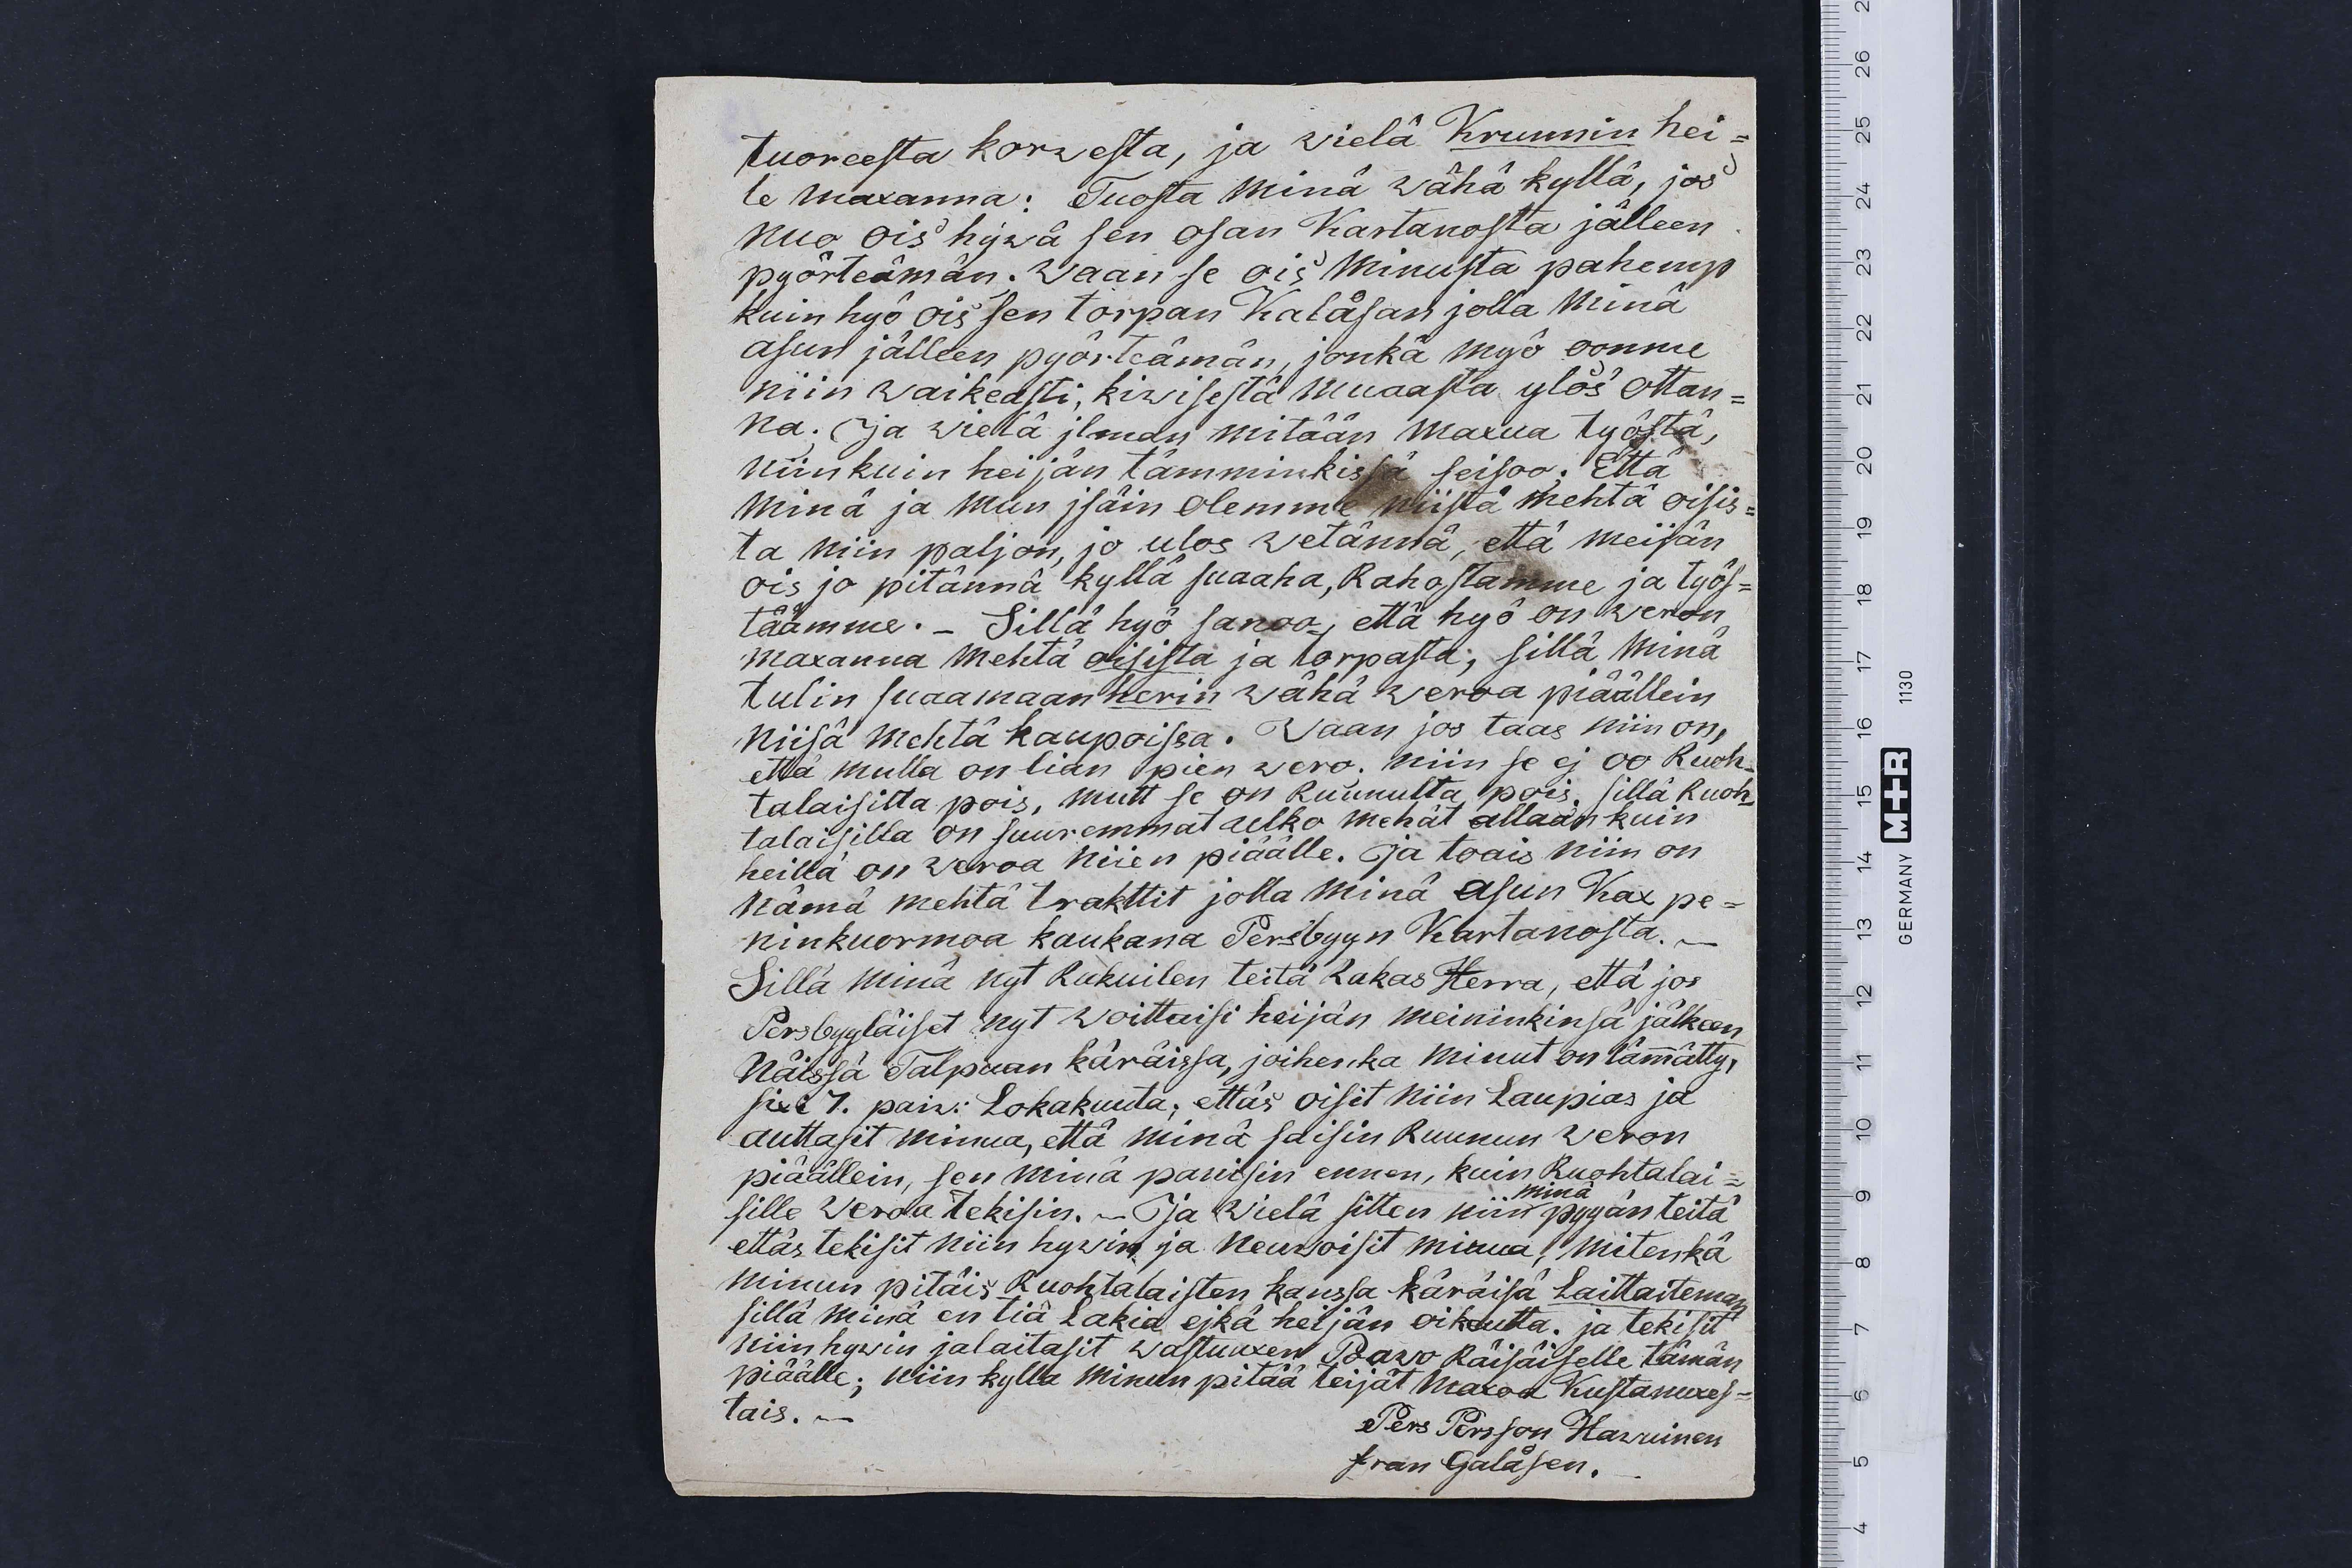 tuoreesta korwesta, ja wielä Kruunin hei=
le maxanna: Tuosta minä wähä kyllä, jos
nuo ois hywä sen osan Kartanosta jälleen
pyörteämän. Waan se ois minusta pahemp
kuin hyö ois sen torpan Kalåsan jolla minä
asun jälleen pyörteämän, jonkä myö oomme
niin waikeasti, kiwisestä muaasta ylös ottan=
na. Ja wielä jlman mitään maxua työstä,
niinkuin heijän tämminkissä seisoo; Että
minä ja mun jsäin olemme niistä mehtä oisis=
ta niin paljon, jo ulos wetännä, että meijän
ois jo pitännä kyllä suaaha, Rahostamme ja työs=
täämme. – Sillä hyö sanoo, että hyö on weron
maxanna mehtä oisista ja torpasta; sillä minä
tulin suaamaan herin wähä weroa piäällein
niisä mehtä kaupoissa. Waan jos taas niin on,
että mulla on lian pien wero. niin se ej oo Ruoh-
talaisilta pois, mutt se on Ruunulta pois, sillä Ruoh-
talaisilla on suuremmat aelko mehät allaan kuin
heillä on weroa niien piäälle. Ja toais niin on
nämä mehtä trakttit jolla minä asun Kax pe=
ninkuormoa kaukana Persbyyn Kartanosta. –
Sillä minä nyt Rukuilen teitä Rakas Herra, että jos
Persbyyläiset nyt woittaisi heijän meininkinsä jälkeen
Näissä Talpuan käräissa, joihenka minut on tämätty,
7. paiw: Lokakuuta; ettäs oisit niin Laupias ja
auttasit minua, että minä saisin Ruunun weron
piäällein, sen minä panisin ennen, kuin Ruohtalai=
sille weroa tekisin. – Ja wielä sitten niin minä pyyän teitä
ettäs tekisit niin hywin ja neuwoisit minua, mitenkä
minun pitäis Ruohtalaisten kanssa käräisä Laittaiteman
sillä minä en tiä Lakia ejkä heijän oikeutta. ja tekisit
niin hywin ja laitasit wastuuxen Pawo Räisäiselle tämän
piäälle; niin kylla minun pitää teijät maxoa Kustanuxes=
tais. –
Pers Persson Hawuinen
fran Galåsen.
M+R
GERMANY 1130
26
25
24
23
22
21
20
19
18
17
16
15
14
13
12
11
10
9
8
7
6
5
4